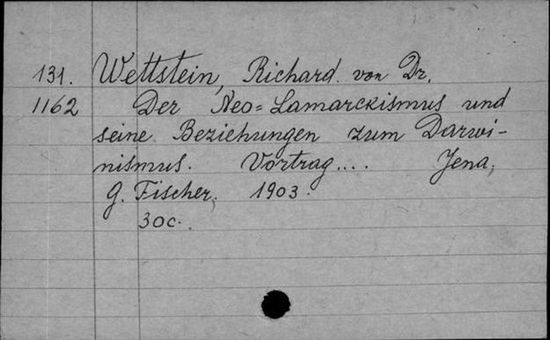 131. Wettstein, Richard von Dr.
1162 Der Neo=Lamarckismus und
seine Beziehungen zum Darwi-
nismus. Vortrag.... Jena,
G. Fischer, 1903.
30c.